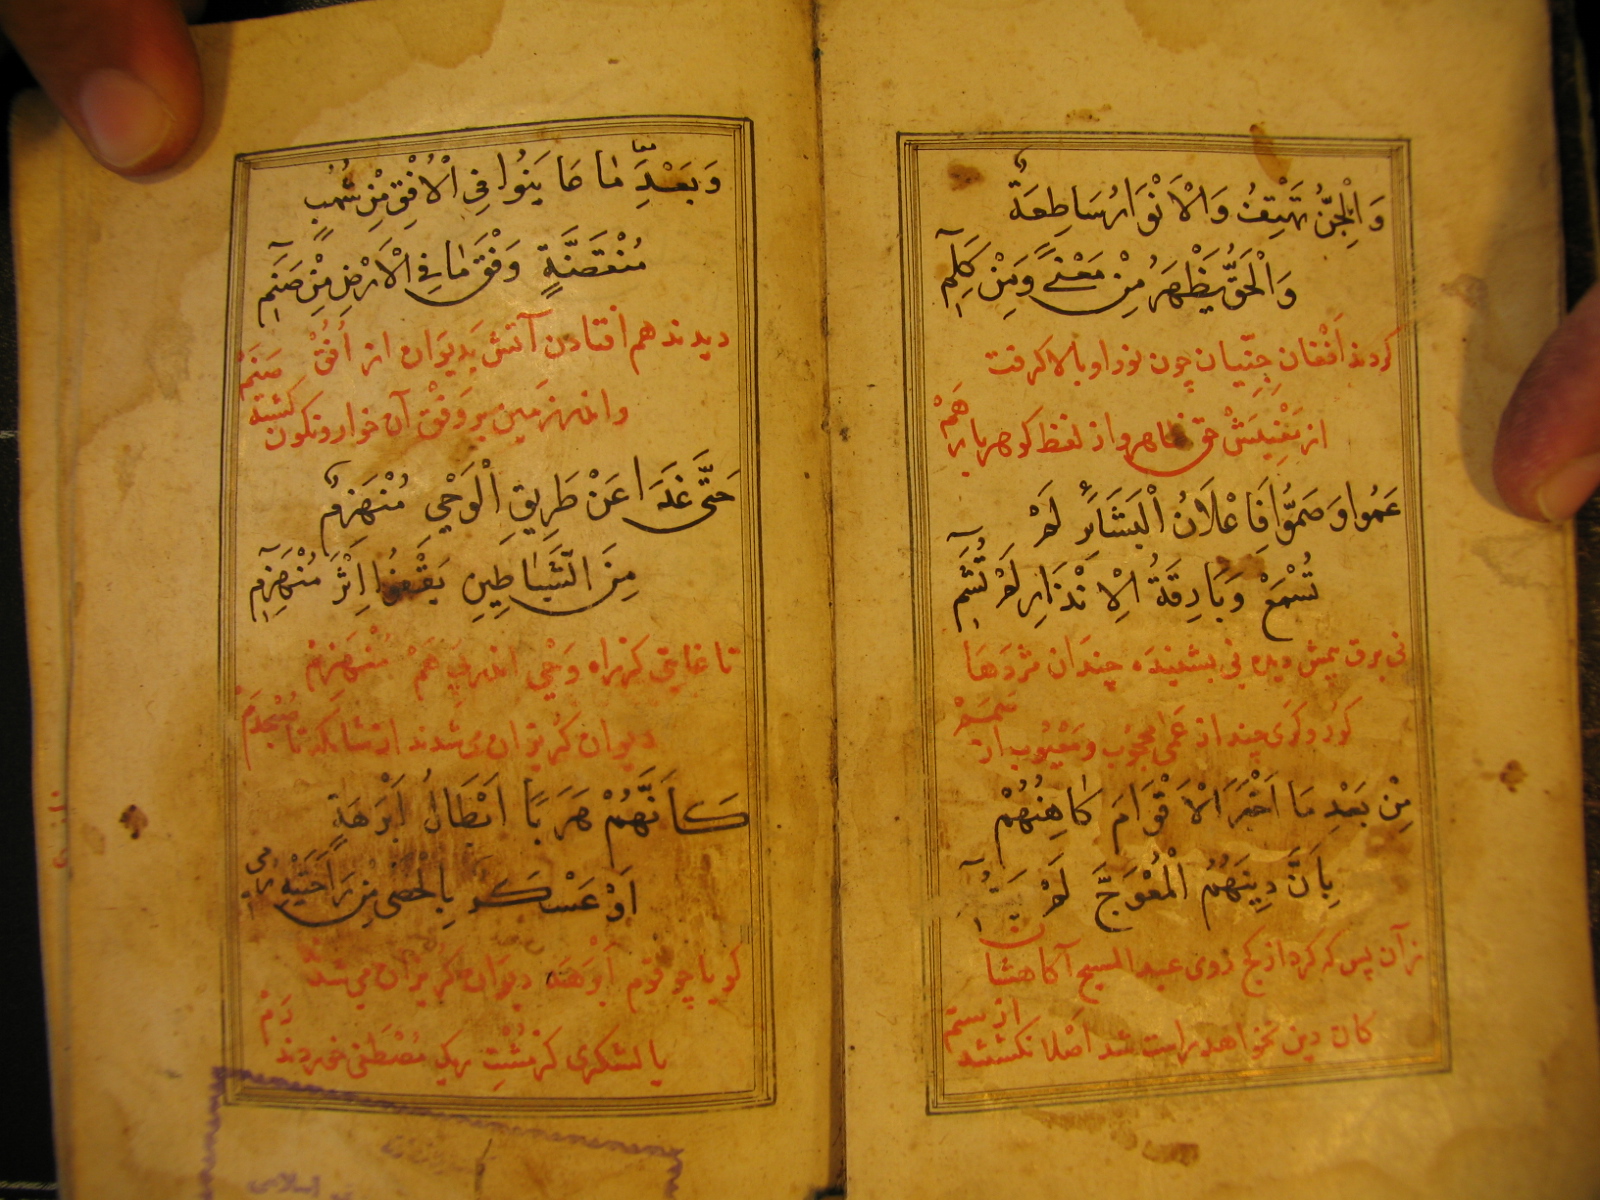 وَالْجِنُّ تَهْتِفُ وَالْاَنْوَارُ سَاطِعَةٌ
وَالْحَقُّ يَظْهَرُ مِنْ مَعْنًى وَمِنْ كَلِمِ
كردند اَفْغان جِنّیان چون نور او بالا کرفت
از مَعْنِیَشْ حق ظاهر و از لفظ کوهربار هَمْ
عَمُوا وَصَمُّوا فَاِعْلَانُ الْبَشَائِرِ لَمْ
تُسْمَعْ وَبَارِقَةُ الْاِنْذَارِ لَمْ تُشَمِ
نی برق بیمش دیده نی بشنیده چندان مژدها
کور و کری چند از عمی محجوب و معیوب از
مِنْ بَعْدِ مَا اَخْبَرَ الْاَقْوَامَ كَاهِنُهُمْ
بِاَنَّ دِينَهُمُ الْمُعْوَجَّ لَمْ
زآن پس که کرد از کج روی عبد المسیح آکاهشا
کان دین نخواهد راست شد اصلا نکشتند از ستم
وَبَعْدِ مَا عَايَنُوا فِي الْاُفْقِ مِنْ شُهُبٍ
مُنْقَضَّةٍ وَفْقَ مَا فِي الْاَرْضِ مِنْ صَنَمِ
دیدند هم افتادن آتش بدیوان از اُفُقْ
وانهم زمین بر وَفْقِ آن خوار و نکون کشته صَنَمْ
حَتَّى غَدَا عَنْ طَرِيقِ الْوَحْيِ مُنْهَزِمٌ
مِنَ الشَّيَاطِينِ يَقْفُوا اِثْرَ مُنْهَزِمِ
تا غایتی کز راه وَحْی اندر پی هَمْ مُنْهَزِمْ
دیوان کریزان می شدند از
كَاَنَّهُمْ هَرَبًا اَبْطَالُ اَبْرَهَةٍ
اَوْ عَسْكَرٌ بِالْحَصٰى مِنْ رَاحَتَيْهِ رُمِي
کویا چو قوم اَبْرَهَه دیوان کریزان می شدند
یا لشکری کز مُشْتِ ریک مصطفی خوردند رَمْ